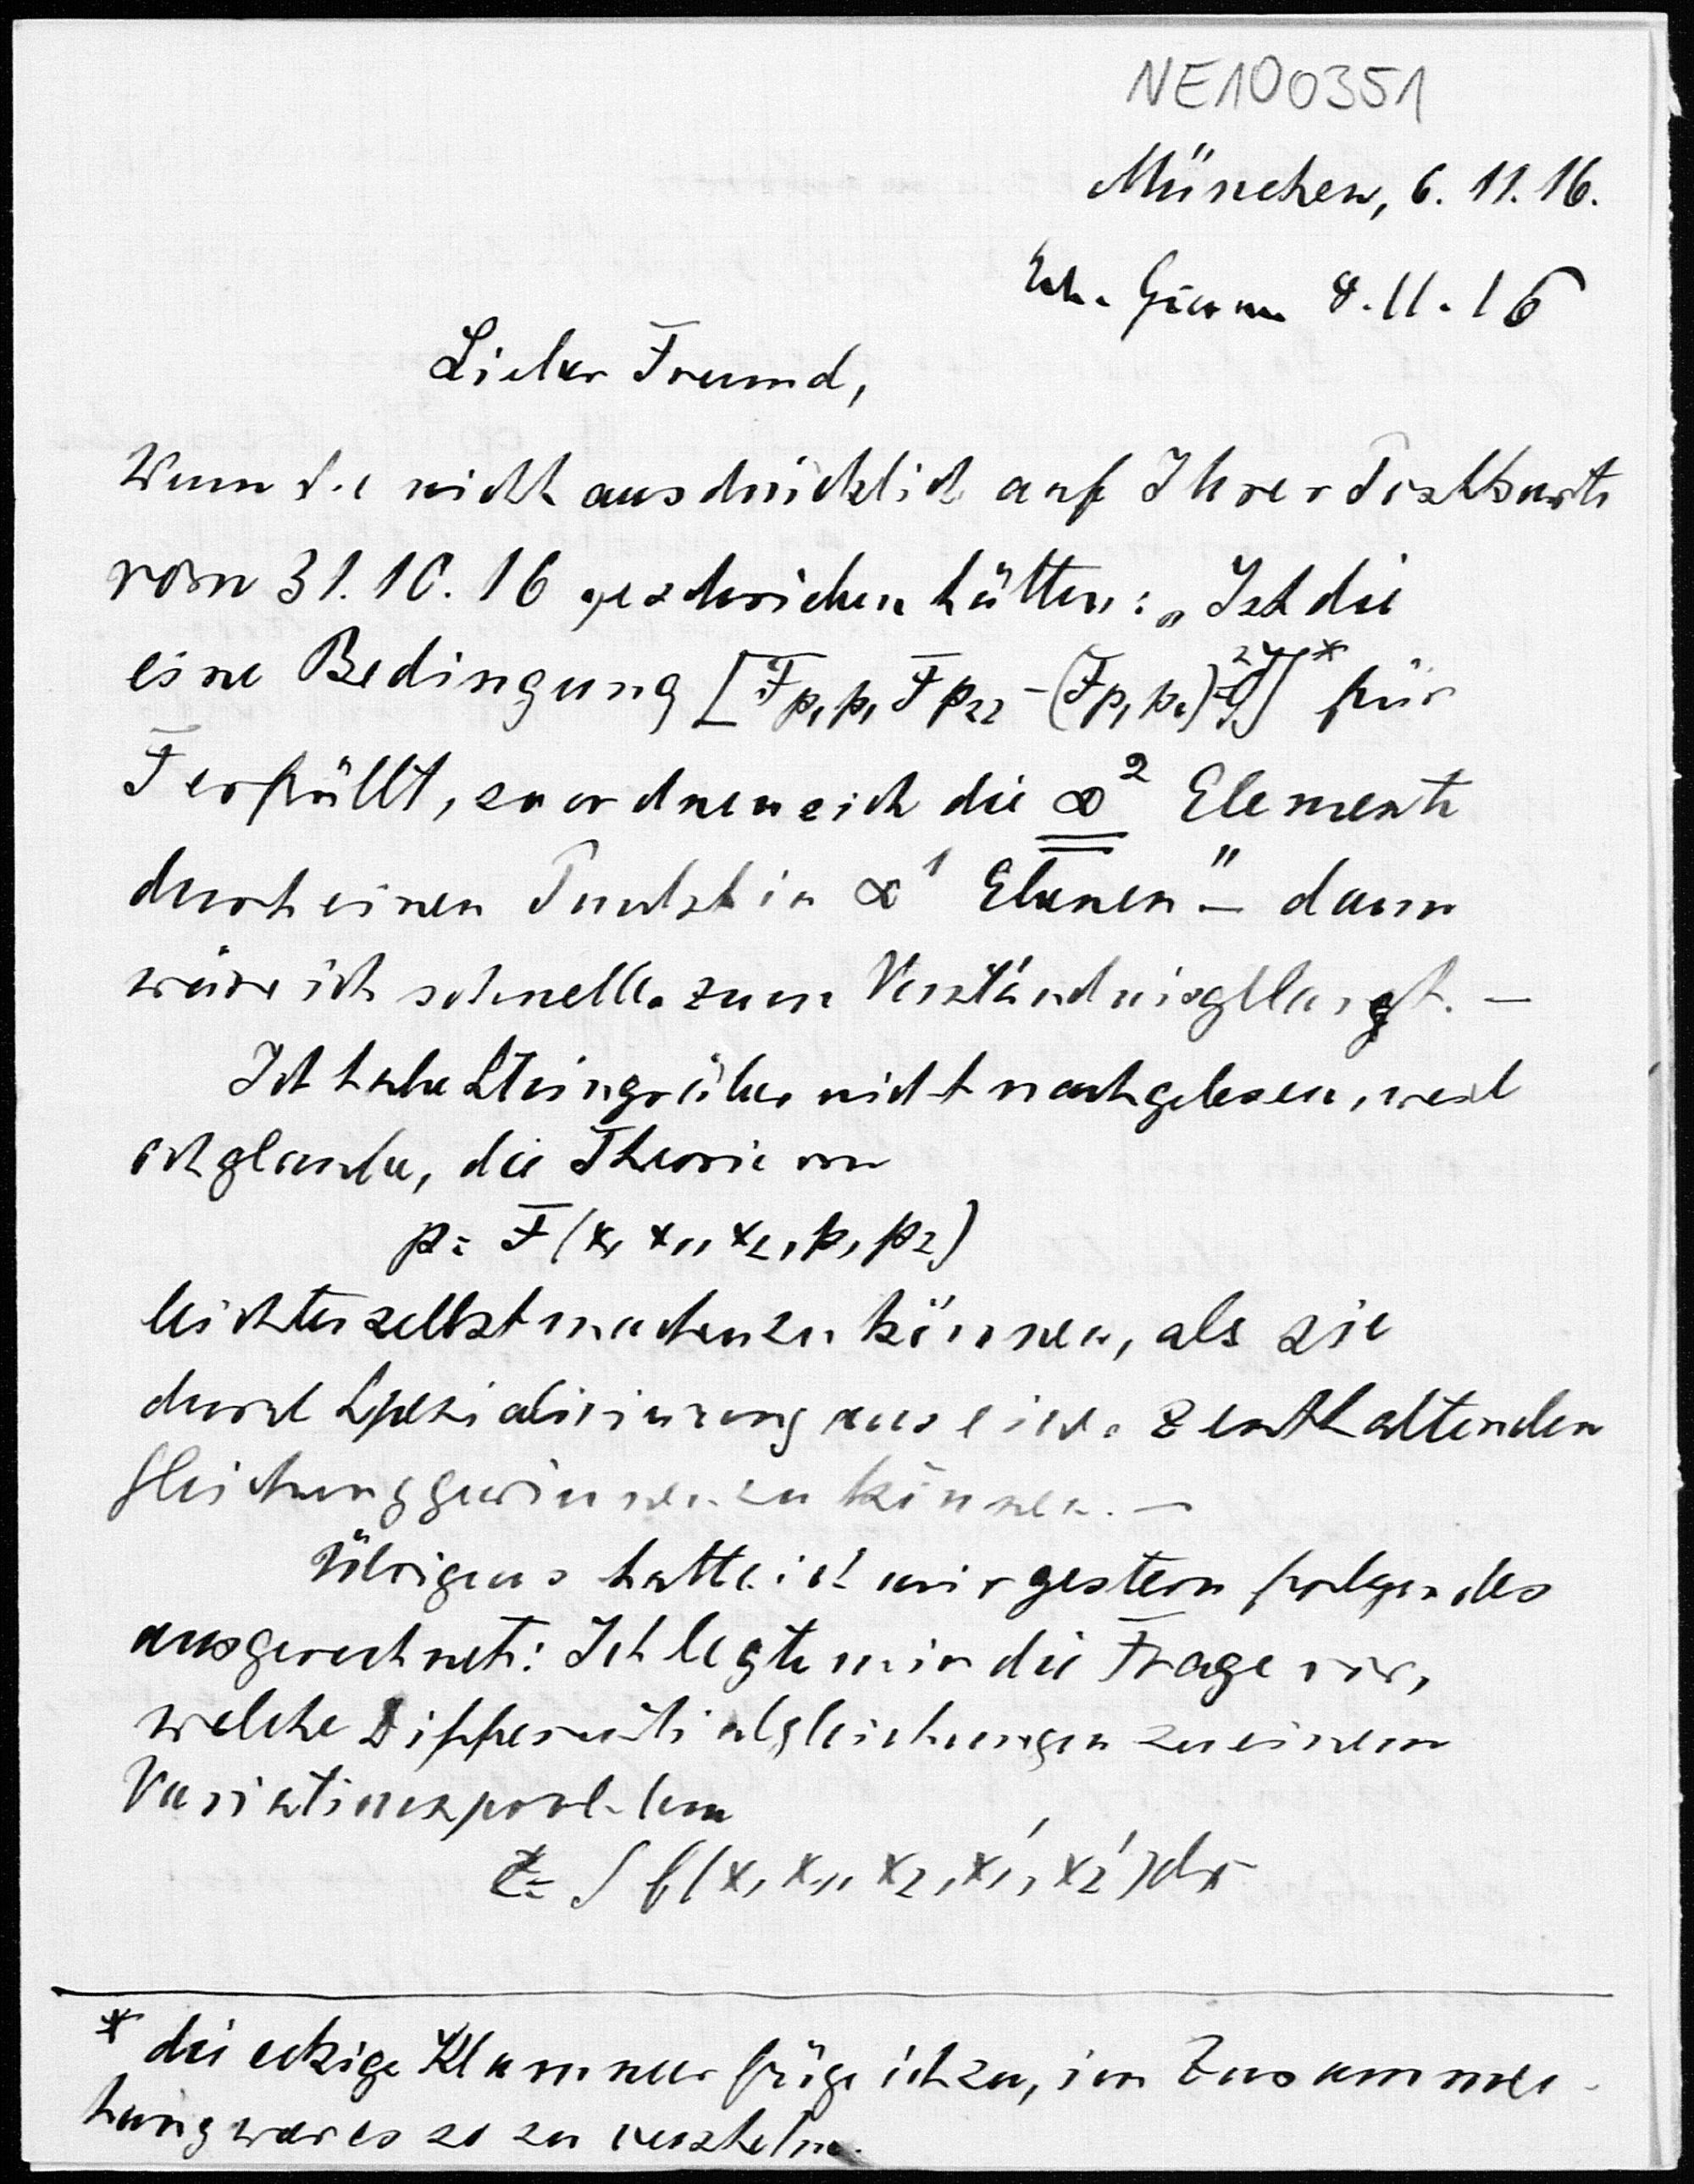 NE100351
München, 6. 11. 16.
8.11.16
Lieber Freund,
Wenn Sie nicht ausdrücklich auf Ihrer Postkarte
vom 31.10.16 geschrieben hätten: „Ist die
eine Bedingung [Fp₁p₁ Fp₂₂ - (Fp₁p₂)² = 0]* für
F erfüllt, so ordnen sich die ∞² Elemente
durch einen Punkt in ∞¹ Ebenen" – dann
wäre ich schneller zum Verständnis gelangt. –
Ich habe Steingrüber nicht nachgelesen, weil
ich glaube, die Theorie von
p = F(x, x₁, x₂, p₁ p₂)
leichter selbst machen zu können, als sie
durch Spezialisierung aus einer z enthaltenden
Gleichung gewinnen zu können. –
Übrigens hatte ich mir gestern folgendes
ausgerechnet: Ich legte mir die Frage vor,
welche Differentialgleichungen zu einem
Variationsproblem
z = ∫ f(x, x₁, x₂, x₁', x₂') dx
* die eckige Klammer füge ich zu, im Zusammen-
hang war es so zu verstehen.